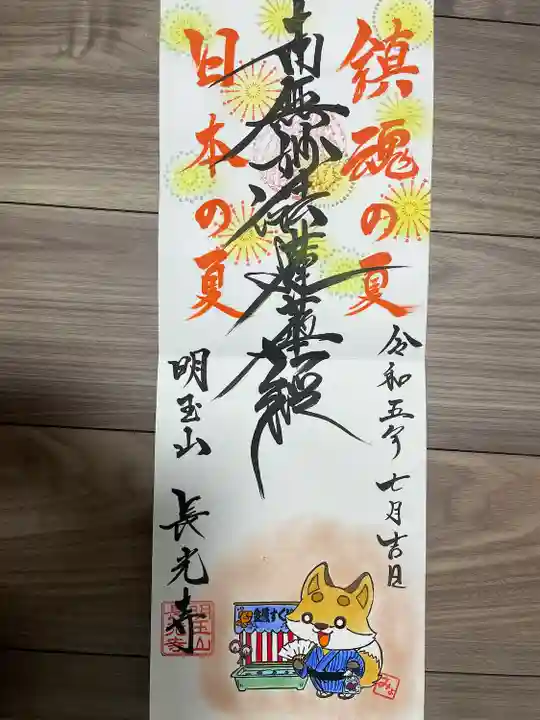 鎮魂の夏
令和五年七月吉日
南無妙法蓮華経
日本の夏
明玉山 長光寺
金魚すくい